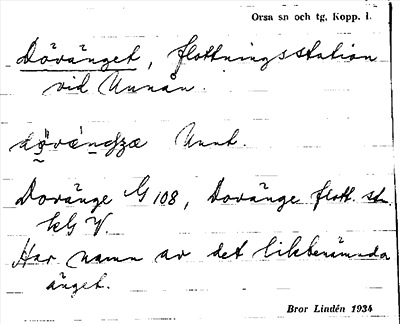 Orsa sn och tg. Kopp. l.
Dövänget, flottningsstation
vid Unnån.
Unnt.
Dovänge G 108, Dovänge flott. stn.
kG V.
Har namn av det likbenämnda
änget.
Bror Lindén 1934